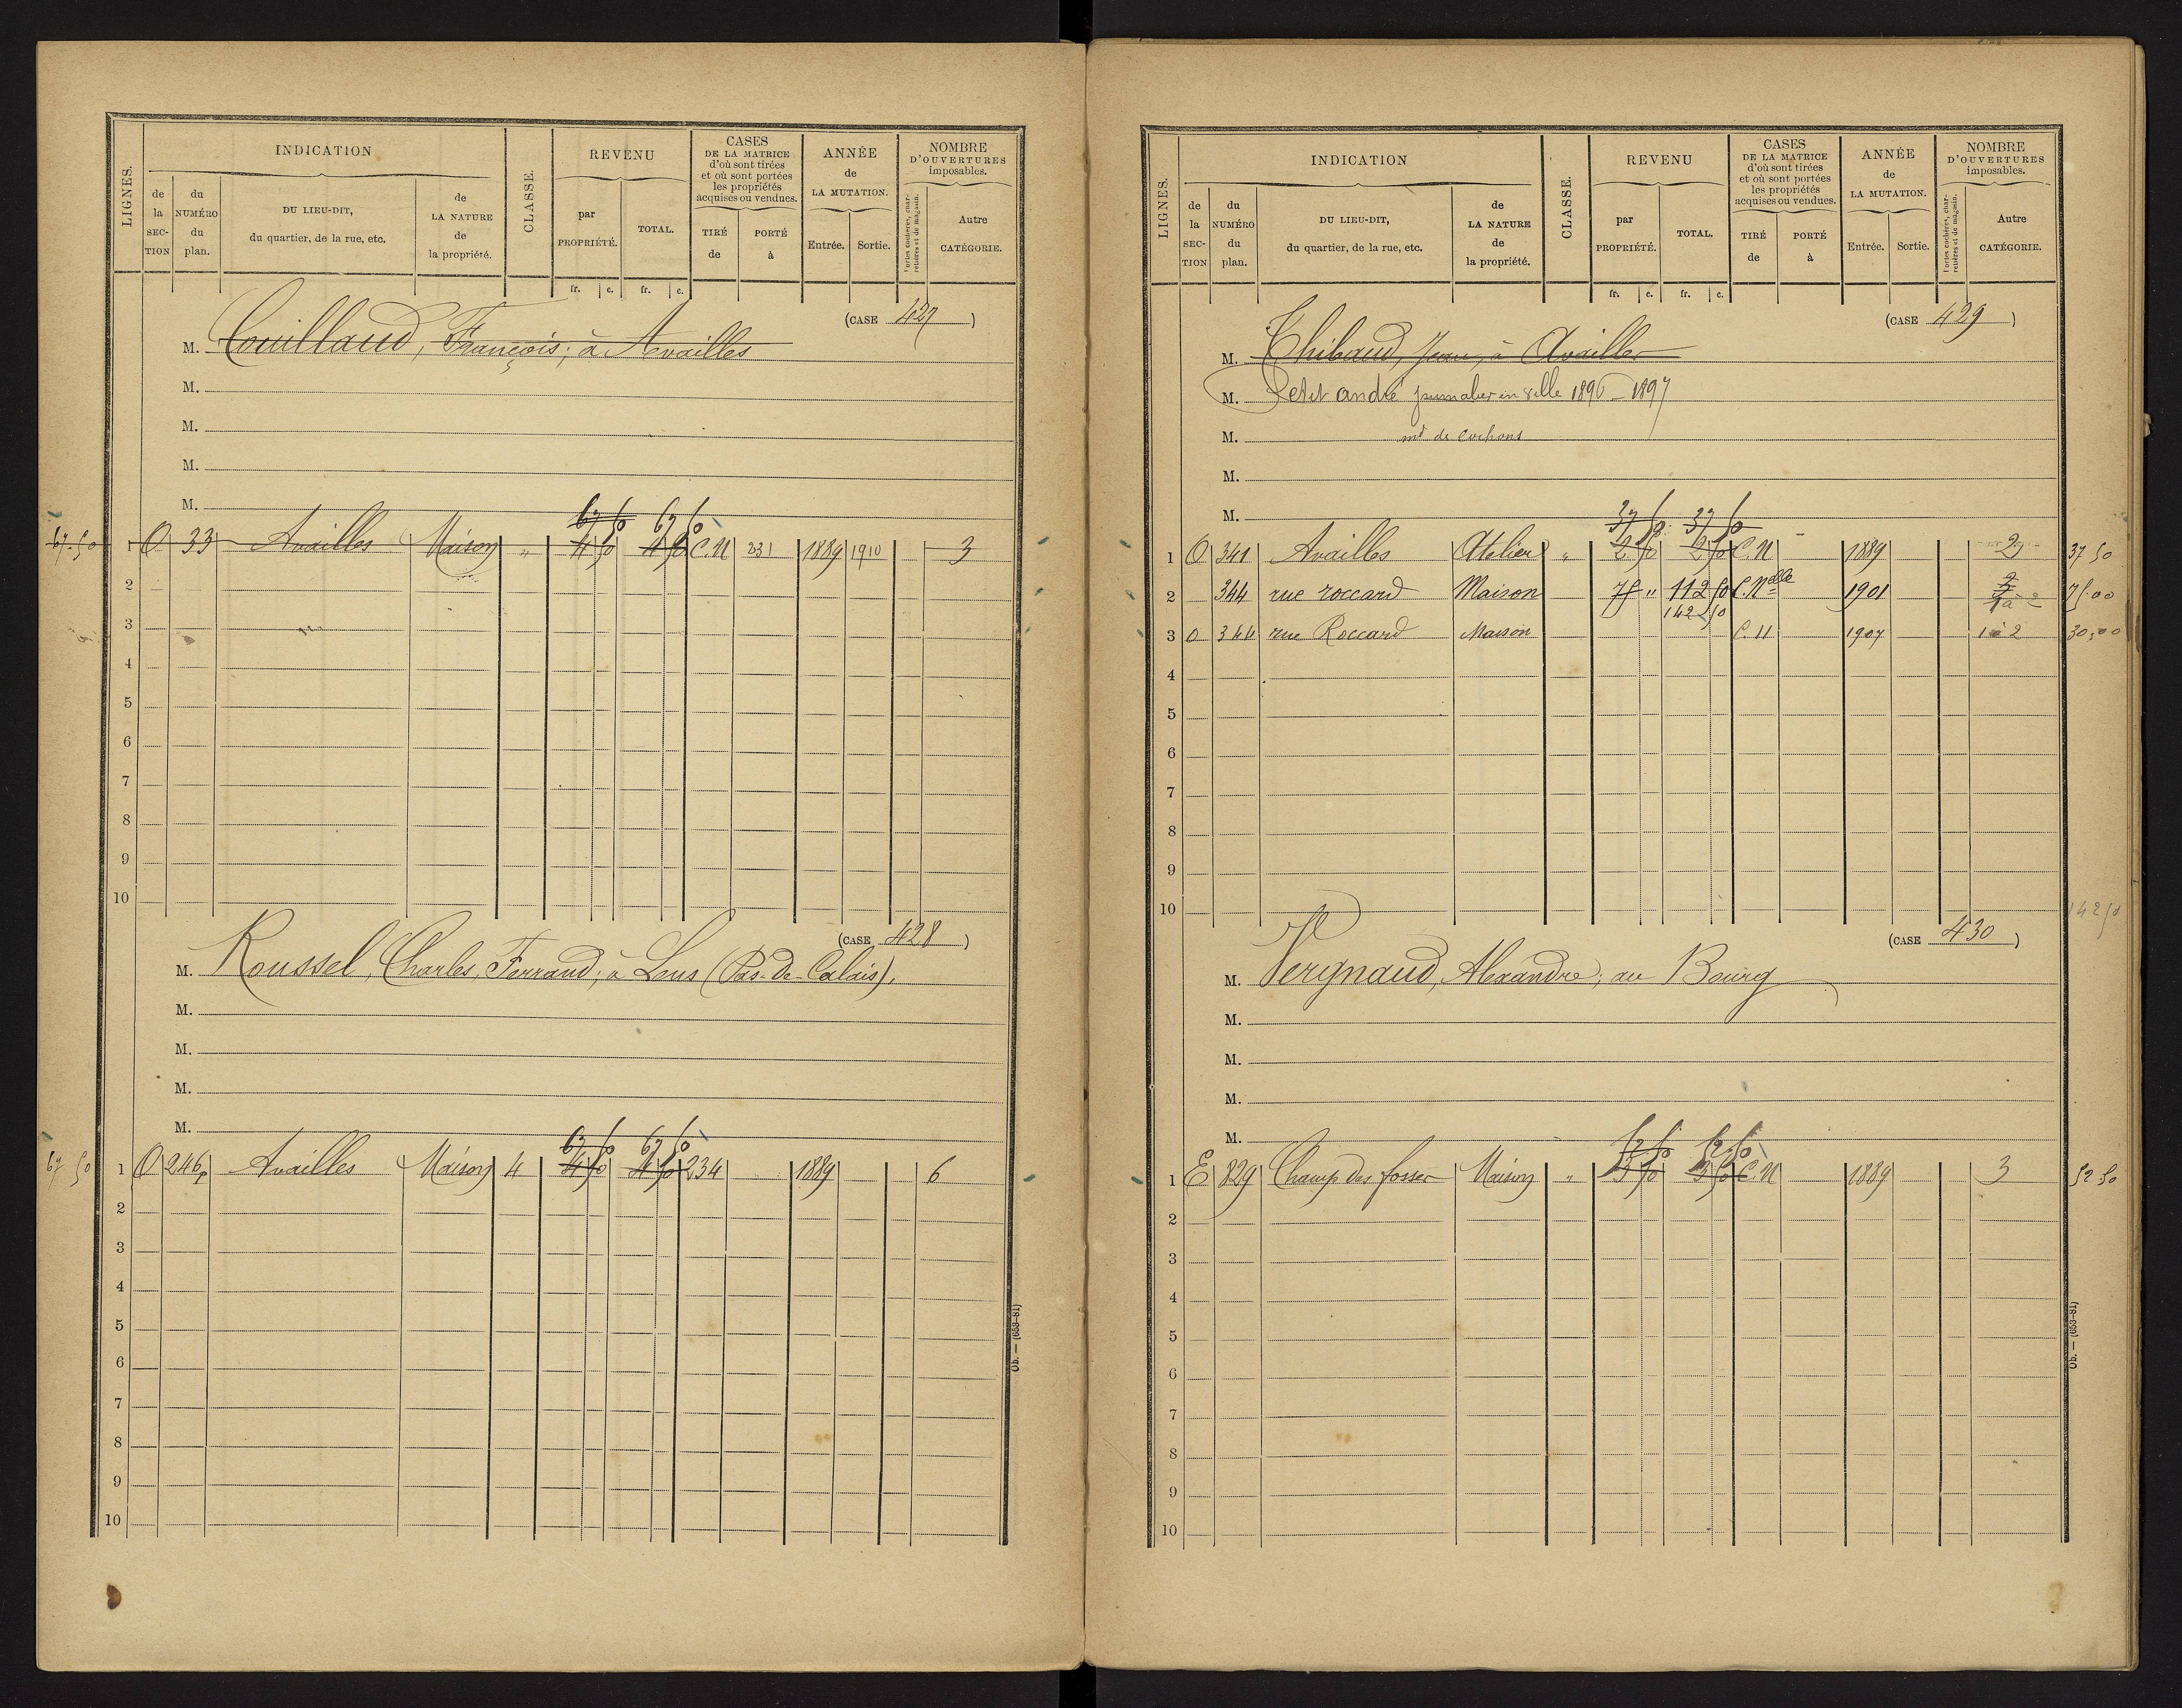 LIGNES. INDICATION CLASSE. REVENU CASES DE LA MATRICE d'où sont tirées et où sont portées les propriétés acquises ou vendues. ANNÉE de LA MUTATION. NOMBRE D'OUVERTURES imposables.
de la SECTION du NUMÉRO du plan. DU LIEU-DIT, du quartier, de la rue, etc. de LA NATURE de la propriété. par PROPRIÉTÉ. TOTAL. TIRÉ de PORTÉ à Entrée. Sortie. Portes cochères, charretières et de magasin. Autre CATÉGORIE.
fr. c. fr. c.
(CASE 427)
M. Couillaud, François; à Availles
M.
M.
M.
M.
67 50 67 50
67.50 1 O 33 Availles Maison " 4 50 4 50 C.N 231 1889 1910 3
2
3
4
5
6
7
8
9
10
(CASE 428)
M. Roussel, Charles, Ferrand; à Lens (Pas-de-Calais),
M.
M.
M.
M.
67 50 67 50
67 50 1 O 246p Availles Maison 4 4 50 4 50 234 1889 6
2
3
4
5
6
7
8
9
10
Ob. — (653-81)
LIGNES. INDICATION CLASSE. REVENU CASES DE LA MATRICE d'où sont tirées et où sont portées les propriétés acquises ou vendues. ANNÉE de LA MUTATION. NOMBRE D'OUVERTURES imposables.
de la SECTION du NUMÉRO du plan. DU LIEU-DIT, du quartier, de la rue, etc. de LA NATURE de la propriété. par PROPRIÉTÉ. TOTAL. TIRÉ de PORTÉ à Entrée. Sortie. Portes cochères, charretières et de magasin. Autre CATÉGORIE.
fr. c. fr. c.
(CASE 429)
M. Thibaud, Jean, à Availles
M. Petit andré journalier en ville 1896 - 1897
M. md de cochons
M.
M.
37 50 37 50
1 O 341 Availles Atelier " 2 50 2 50 C.N 1889 2 37 50
2 344 rue roccard Maison 75 " 112 50 C. Nelle 1901 2 75.00
142 50
3 O 344 rue Roccard Maison C. N 1907 1 à 2 30,00
4
5
6
7
8
9
10 142 50
(CASE 430)
M. Vergnaud, Alexandre; au Bourg
M.
M.
M.
M.
52 50 52 50
1 E 829 Champ des fosses Maison " 3 50 3 50 C.N 1889 3 52 50
2
3
4
5
6
7
8
9
10
Ob. — (653-81)